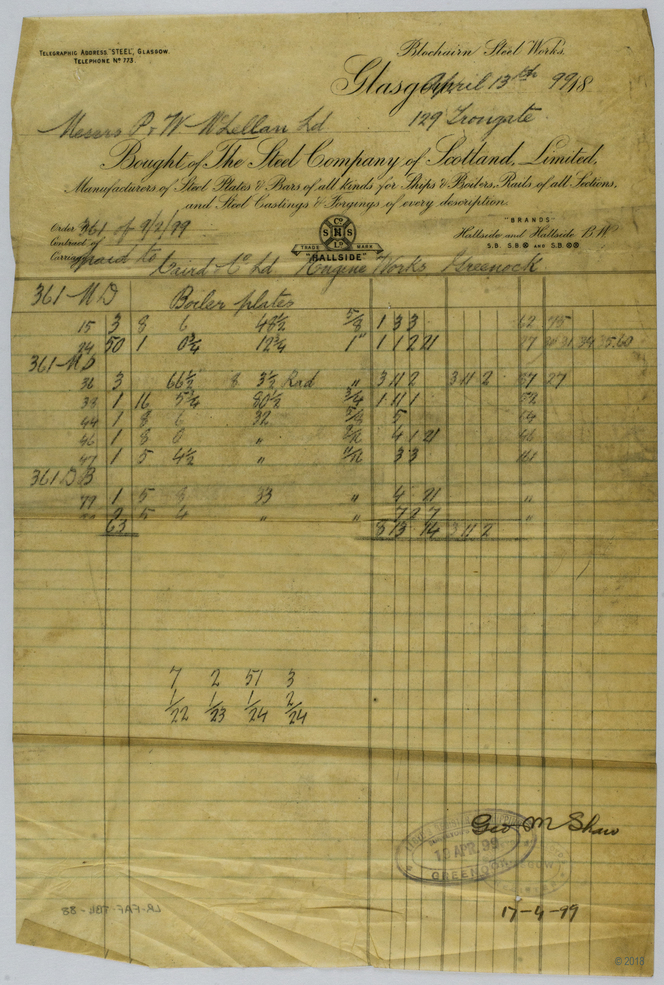 TELEGRAPHIC ADDRESS "STEEL", GLASGOW.
TELEPHONE No 773.
Blochairn Steel Works.
Glasgow April 13th 99
Messrs P & W McLellan Ld 129 Trongate
Bought of The Steel Company of Scotland, Limited,
Manufacturers of Steel Plates & Bars of all kinds for Ships & Boilers, Rails of all Sections,
and Steel Castings & Forgings of every description.
Order 361 of 9/2/99
Contract of
Carriage paid to Caird & Co Ld Engine Works Greenock
TRADE MARK
"HALLSIDE"
"BRANDS"
Hallside and Hallside B.W
S.B. S.B AND S.B.
361 MD Boiler plates
15 3 8 6 48½ 5/8 1 3 3 62 75
24 50 1 0¾ 12¾ 1" 1 1 2 21
361 MD
36 3 66½ 8 3½ Rad " 3 11 2 3 11 2 57 27
38 1 16 5¾ 80½ ¾ 1 11 1
44 1 8 6 32 5
46 1 8 0 " 4 1 21
47 1 5 4½ " 3 3
361 DB
79 1 5 8 33 " 4 21 "
2 5 4 " " 7 2 7 "
63 8 13 14 3 11 2
7 2 51 3
1/22 1/23 1/24 2/24
Geo M Shaw
APR 99
GREENOCK
17-4-99
LR-FAF-TBU-88
© 2018